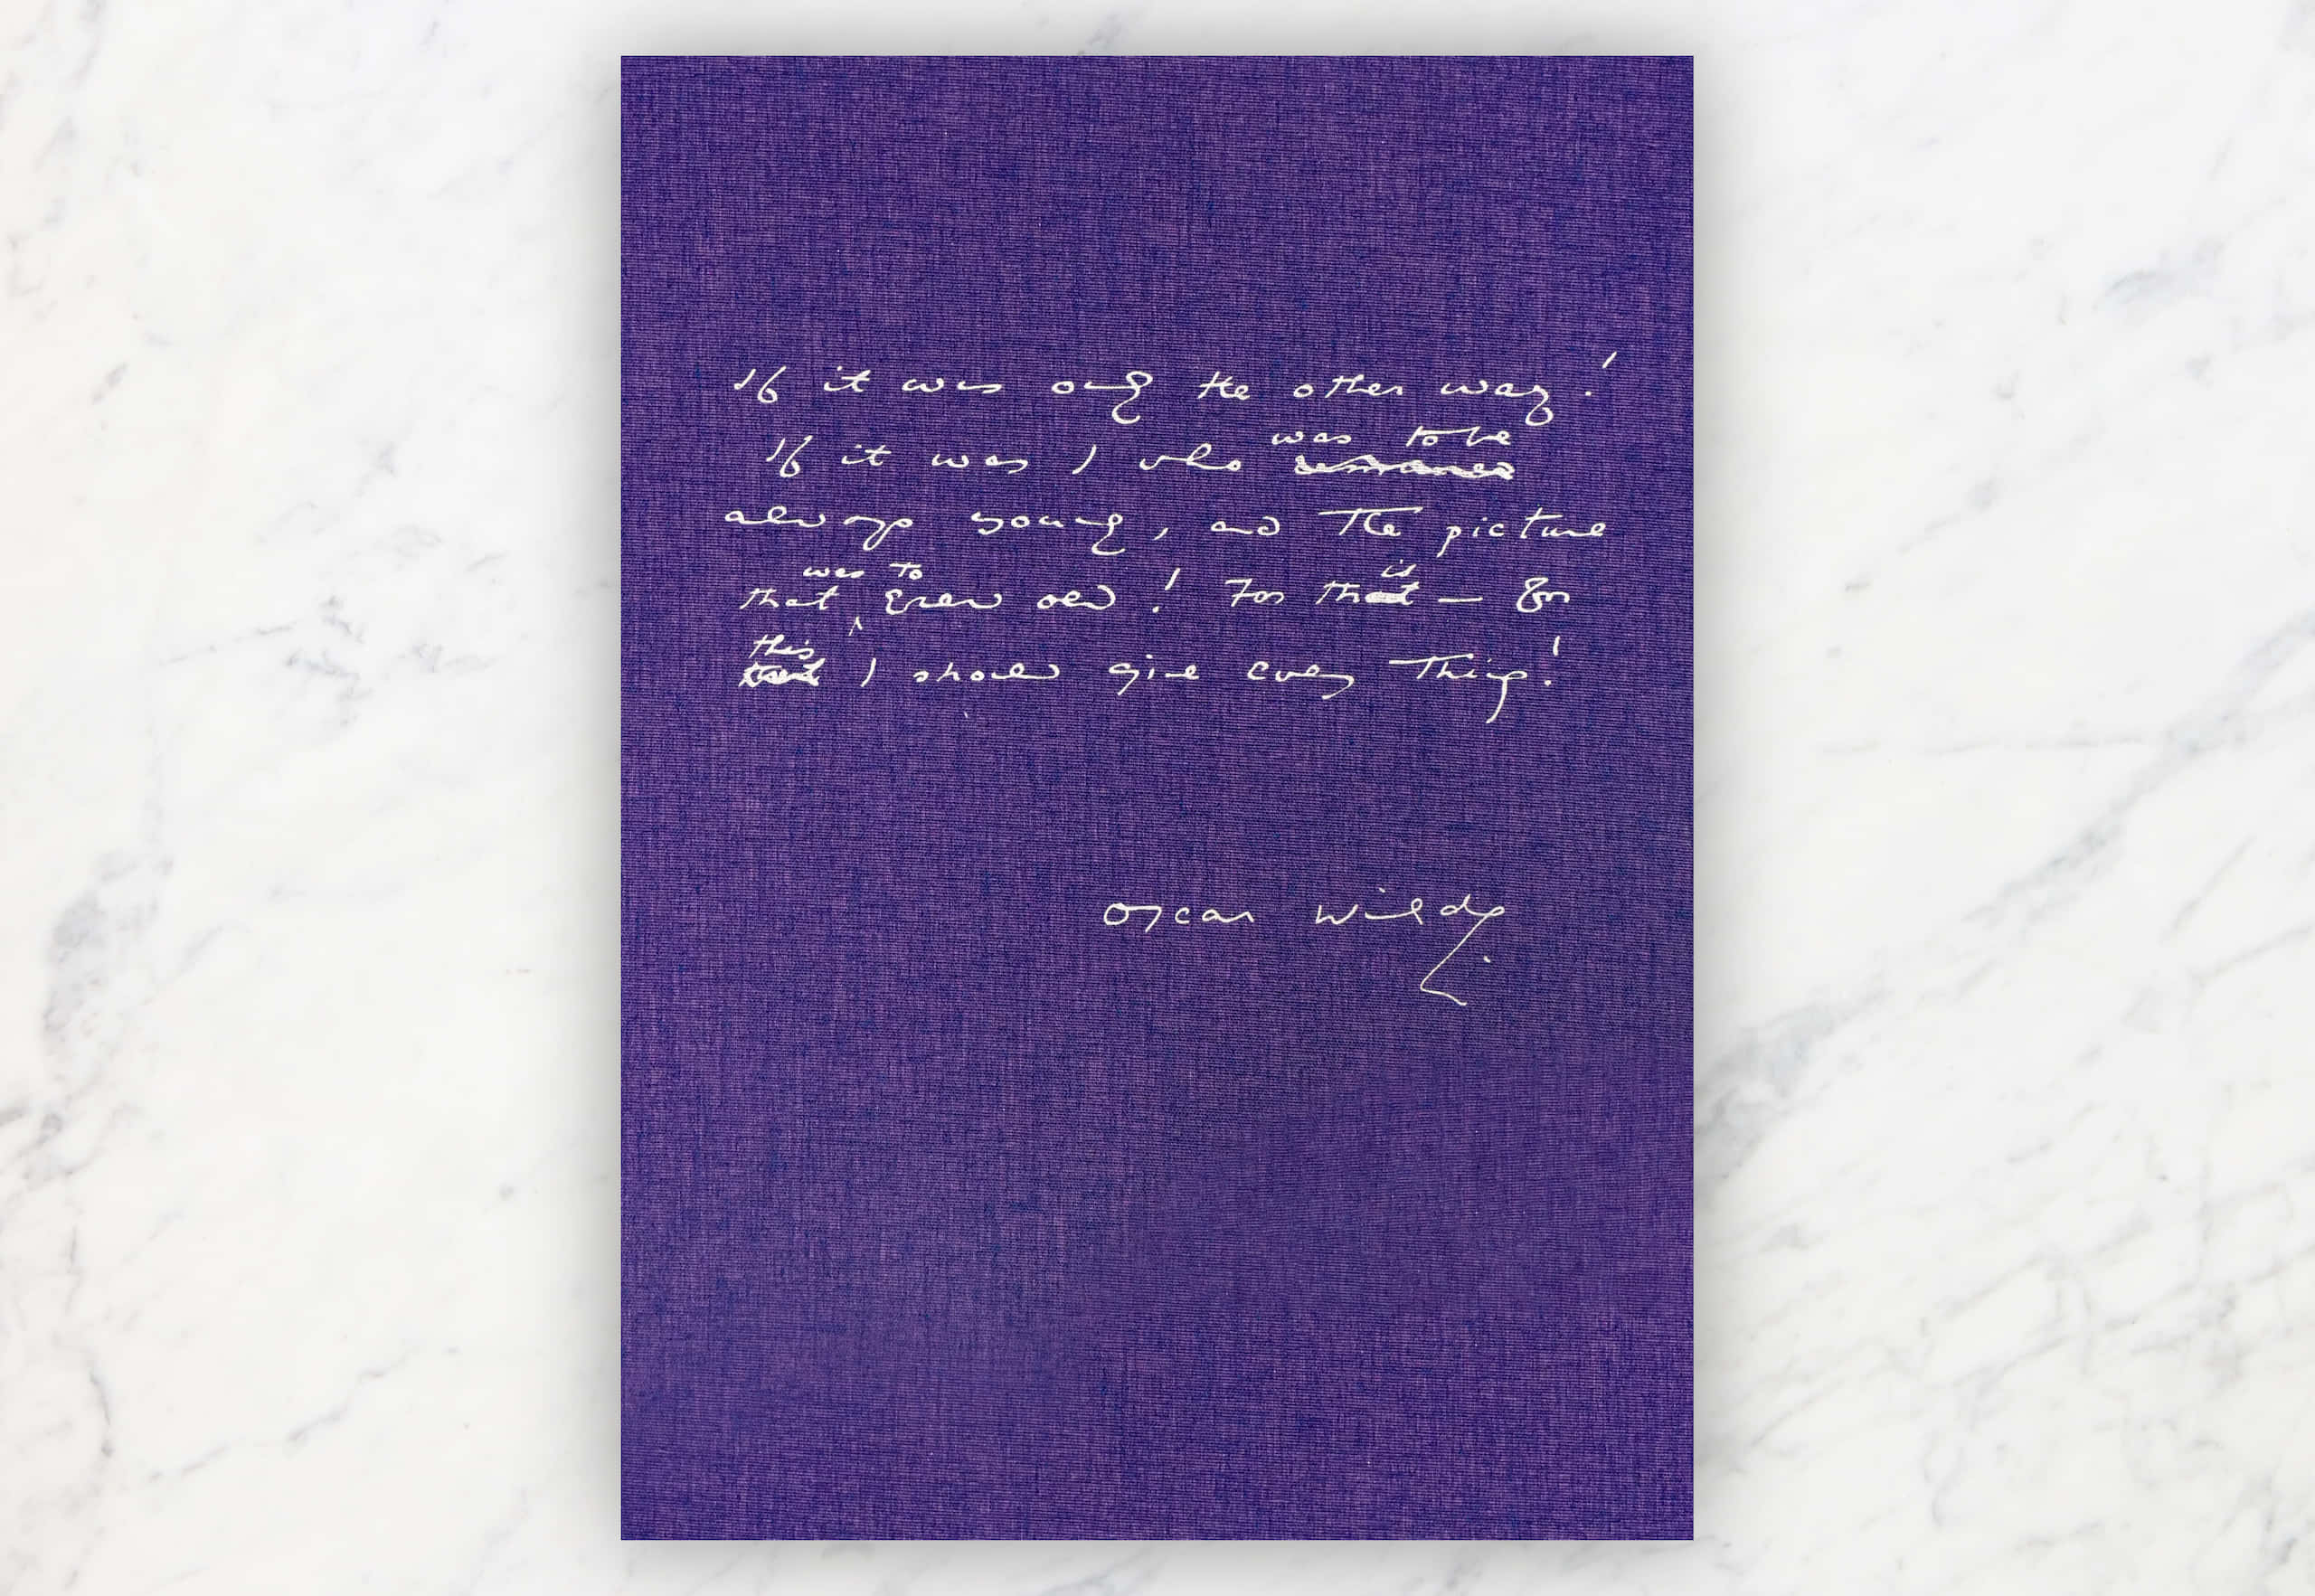 If it was only the other way!
was to be
If it was I who remained
always young, and the picture
was to is
that grew old! For that — for
this
that I should give every thing!
Oscar Wilde